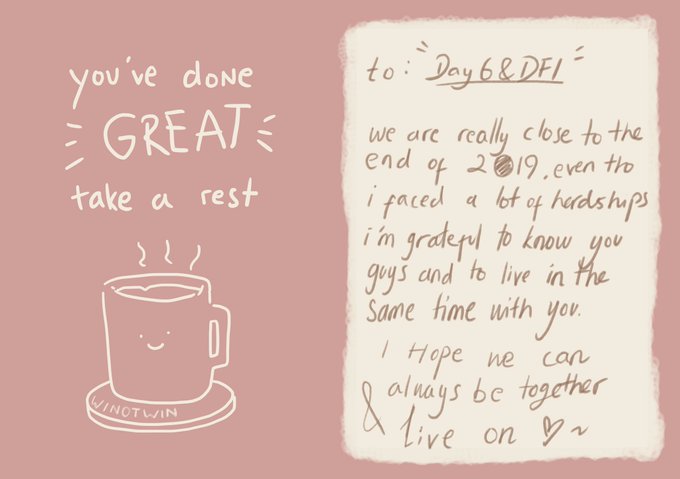 you've done
GREAT
take a rest
WINOTWIN
to: "Day6&DFI"
we are really close to the
end of 2019, even tho
i faced a lot of herdships
i'm grateful to know you
guys and to live in the
same time with you.
I Hope we can
always be together
& live on ♡~